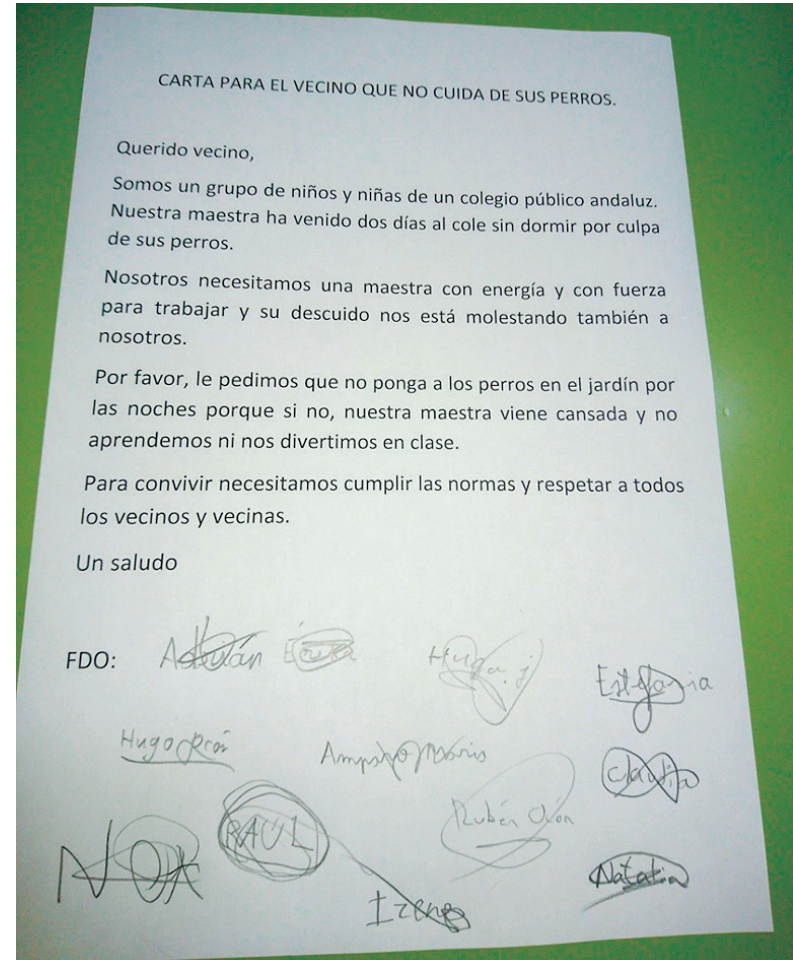 CARTA PARA EL VECINO QUE NO CUIDA DE SUS PERROS.
Querido vecino,
Somos un grupo de niños y niñas de un colegio público andaluz.
Nuestra maestra ha venido dos días al cole sin dormir por culpa
de sus perros.
Nosotros necesitamos una maestra con energía y con fuerza
para trabajar y su descuido nos está molestando también a
nosotros.
Por favor, le pedimos que no ponga a los perros en el jardín por
las noches porque si no, nuestra maestra viene cansada y no
aprendemos ni nos divertimos en clase.
Para convivir necesitamos cumplir las normas y respetar a todos
los vecinos y vecinas.
Un saludo
FDO: Adrián Érika Hugo j
Estefania
Hugo
Claudia
Rubén
RAUL
NOA
Natalia
Irene